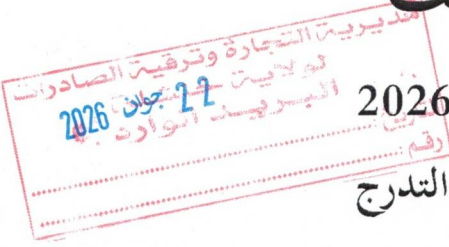 مديرية التجارة وترقية الصادرات
لولاية
البريد الوارد
22 جوان 2026
رقم:
2026
التدرج